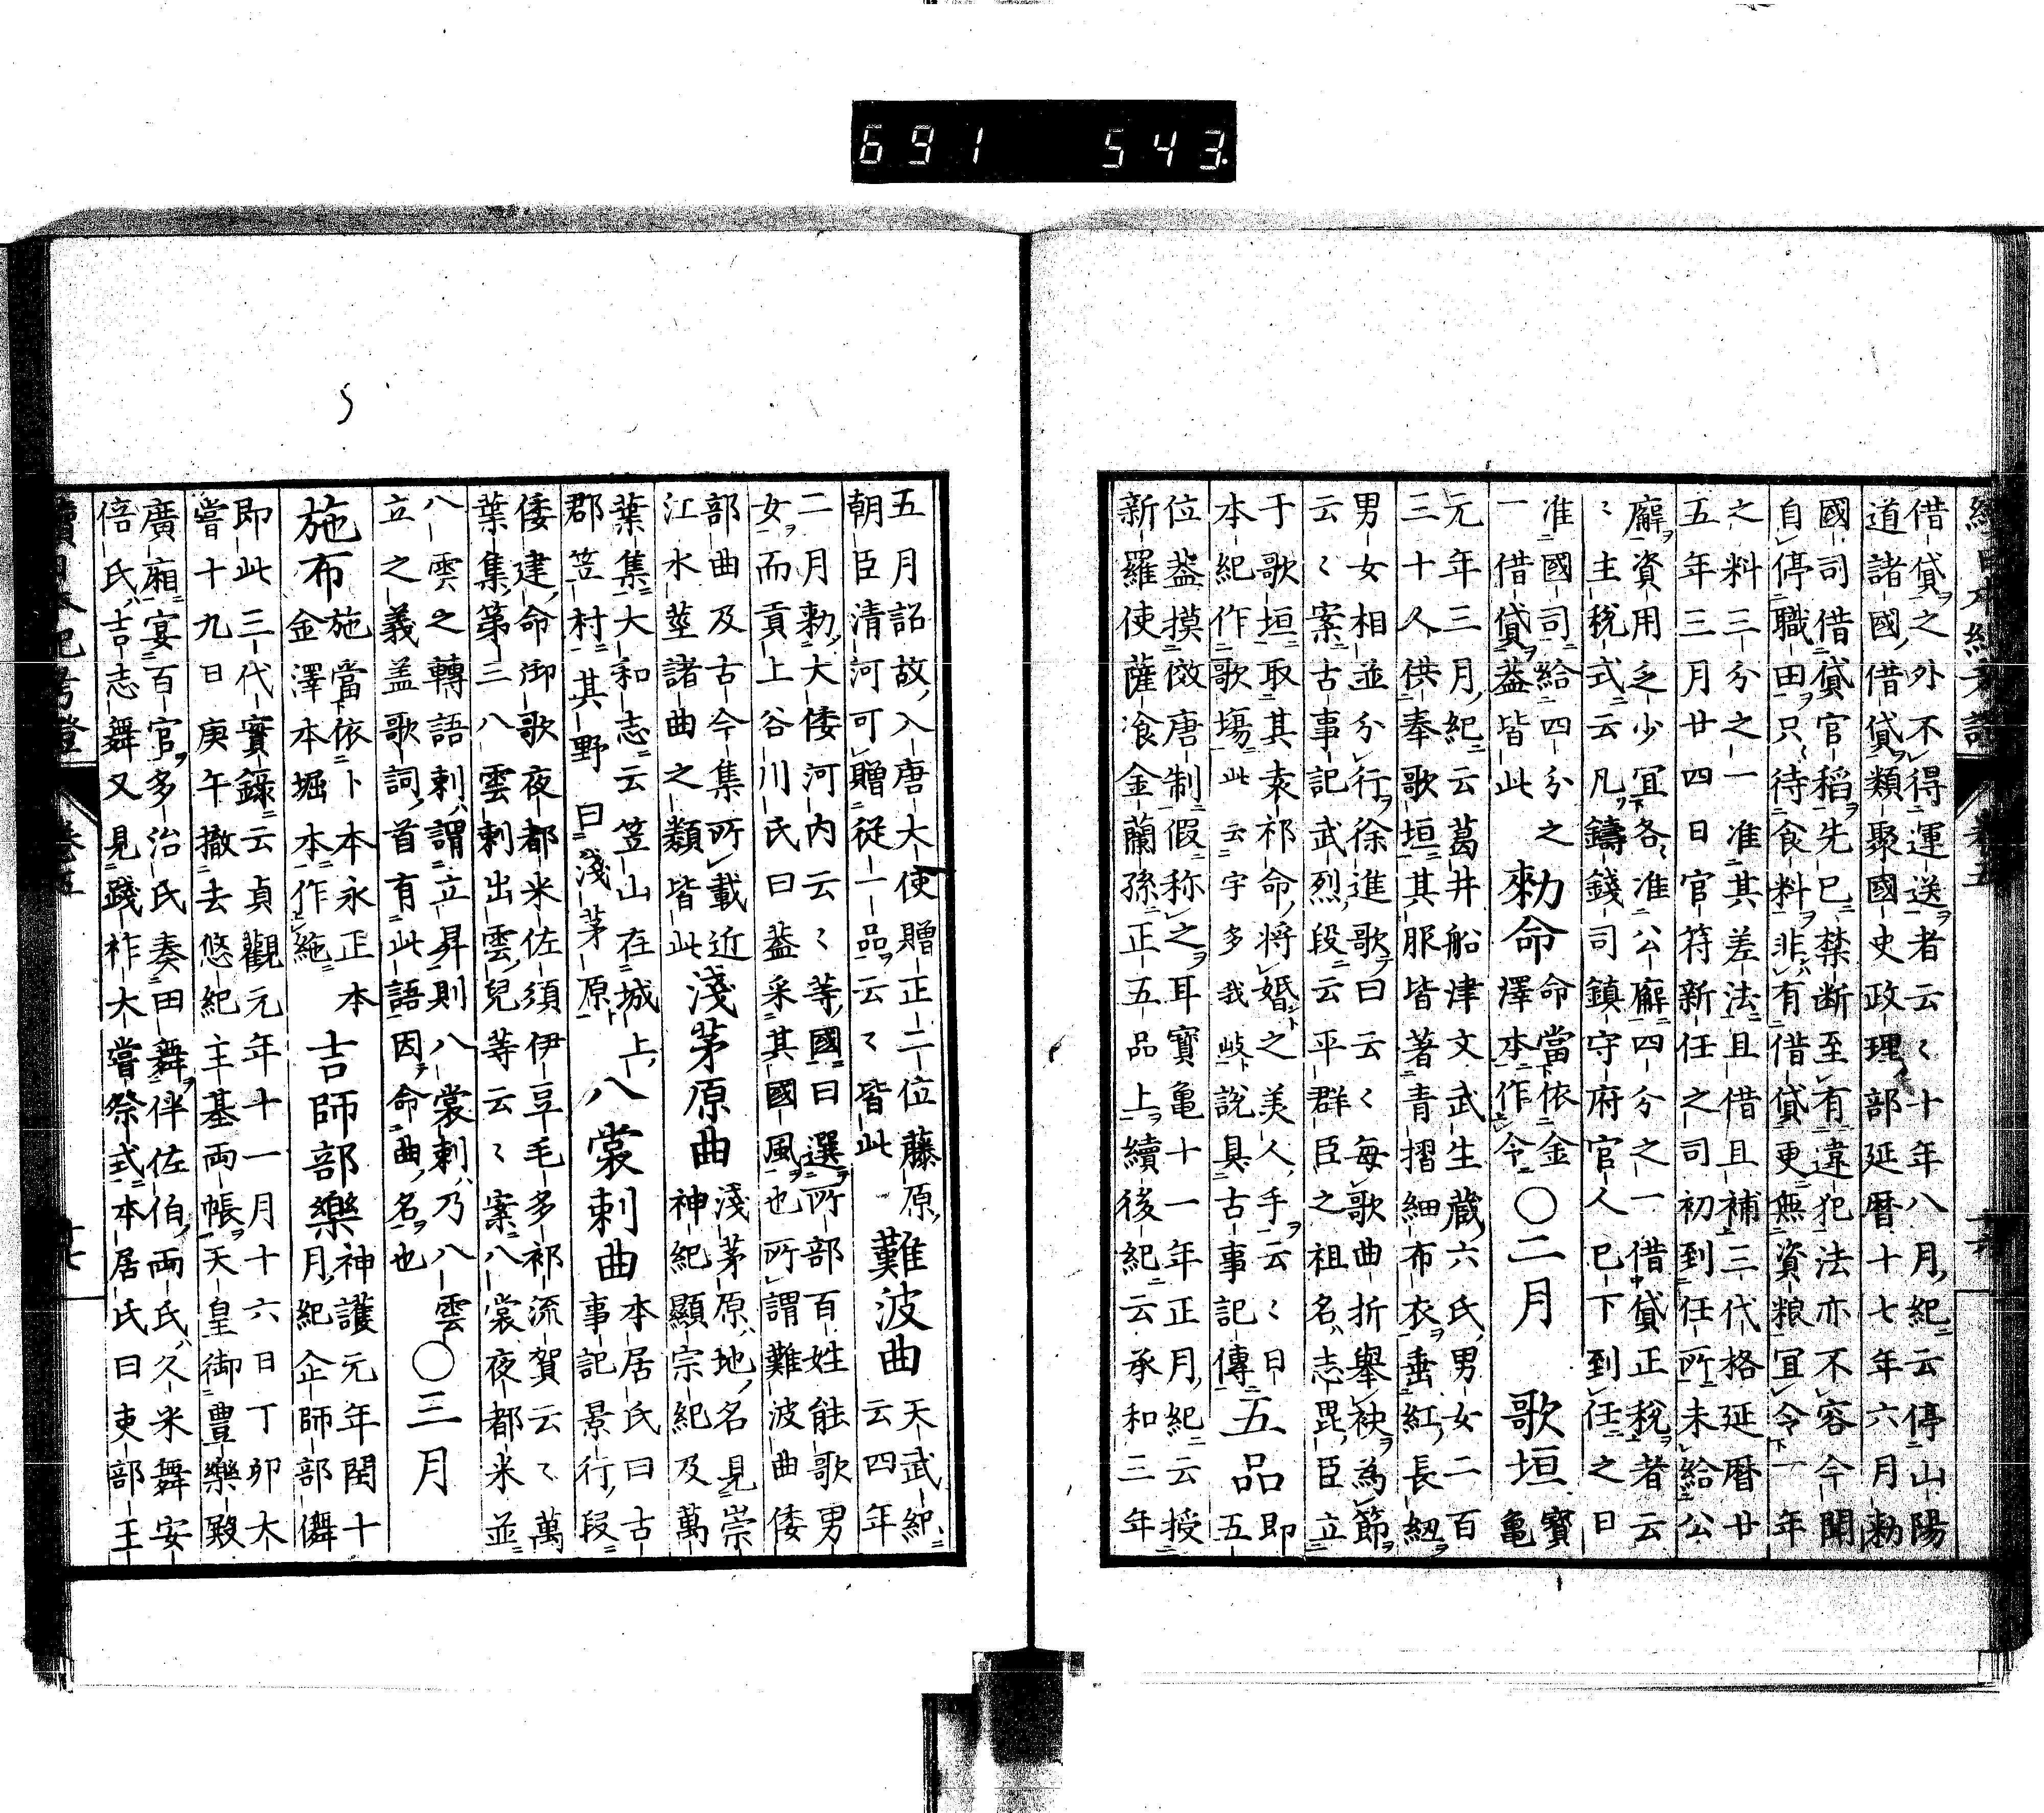 691 543
借貸之外不得運送者云〻十年八月紀云停山陽
道諸國借貸類聚國史政理部延暦十七年六月勅
國司借貸官稻先已禁断至有違犯法亦不容今聞
自停職田只待食料非有借貸更無資粮宜令一年
之料三分之一准其差法且借且補三代格延暦廿
五年三月廿四日官符新任之司初到任所未給公
廨資用乏少冝各准公廨四分之一借貸正税者云
〻主税式云凡鑄錢司鎮守府官人已下到任之日
准國司給四分之
一借貸蓋皆此
勅命
命當依金
澤本作令
〇二月
歌垣
寳
亀
元年三月紀云葛井船津文武生蔵六氏男女二百
三十人供奉歌垣其服皆著青摺細布衣垂紅長紐
男女相並分行徐進歌曰云〻毎歌曲折擧袂為節
云〻案古事記武烈段云平群臣之祖名志毘臣立
于歌垣取其袁祁命将婚之美人手云〻日
本紀作歌塲此云宇多我岐説具古事記傳
五品
即
五
位蓋摸倣唐制假称之耳寳亀十一年正月紀云授
新羅使薩飡金蘭孫正五品上續後紀云承和三年
五月詔故入唐大使贈正二位藤原
朝臣清河可贈従一品云〻皆此
難波曲
天武紀
云四年
二月勅大倭河内云〻等國曰選所部百姓能歌男
女而貢上谷川氏曰蓋采其國風也所謂難波曲倭
部曲及古今集所載近
江水莖諸曲之類皆此
淺茅原曲
淺茅原地名見崇
神紀顯宗紀及萬
葉集大和志云笠山在城上
郡笠村其野曰淺茅原
八裳刺曲
本居氏曰古
事記景行段
倭建命御歌夜都米佐須伊豆毛多祁流賀云〻萬
葉集第三八雲刺出雲兒等云〻案八裳夜都米並
八雲之轉語刺謂立昇則八裳刺乃八雲
立之義蓋歌詞首有此語因命曲名也
〇三月
施布
施當依卜本永正本
金澤本堀本作絁
吉師部樂
神護元年閏十
月紀企師部儛
即此三代實録云貞觀元年十一月十六日丁卯大
嘗十九日庚午撤去悠紀主基兩帳天皇御豊樂殿
廣廂宴百官多治氏奏田舞伴佐伯兩氏久米舞安
倍氏吉志舞又見踐祚大嘗祭式本居氏曰吏部王